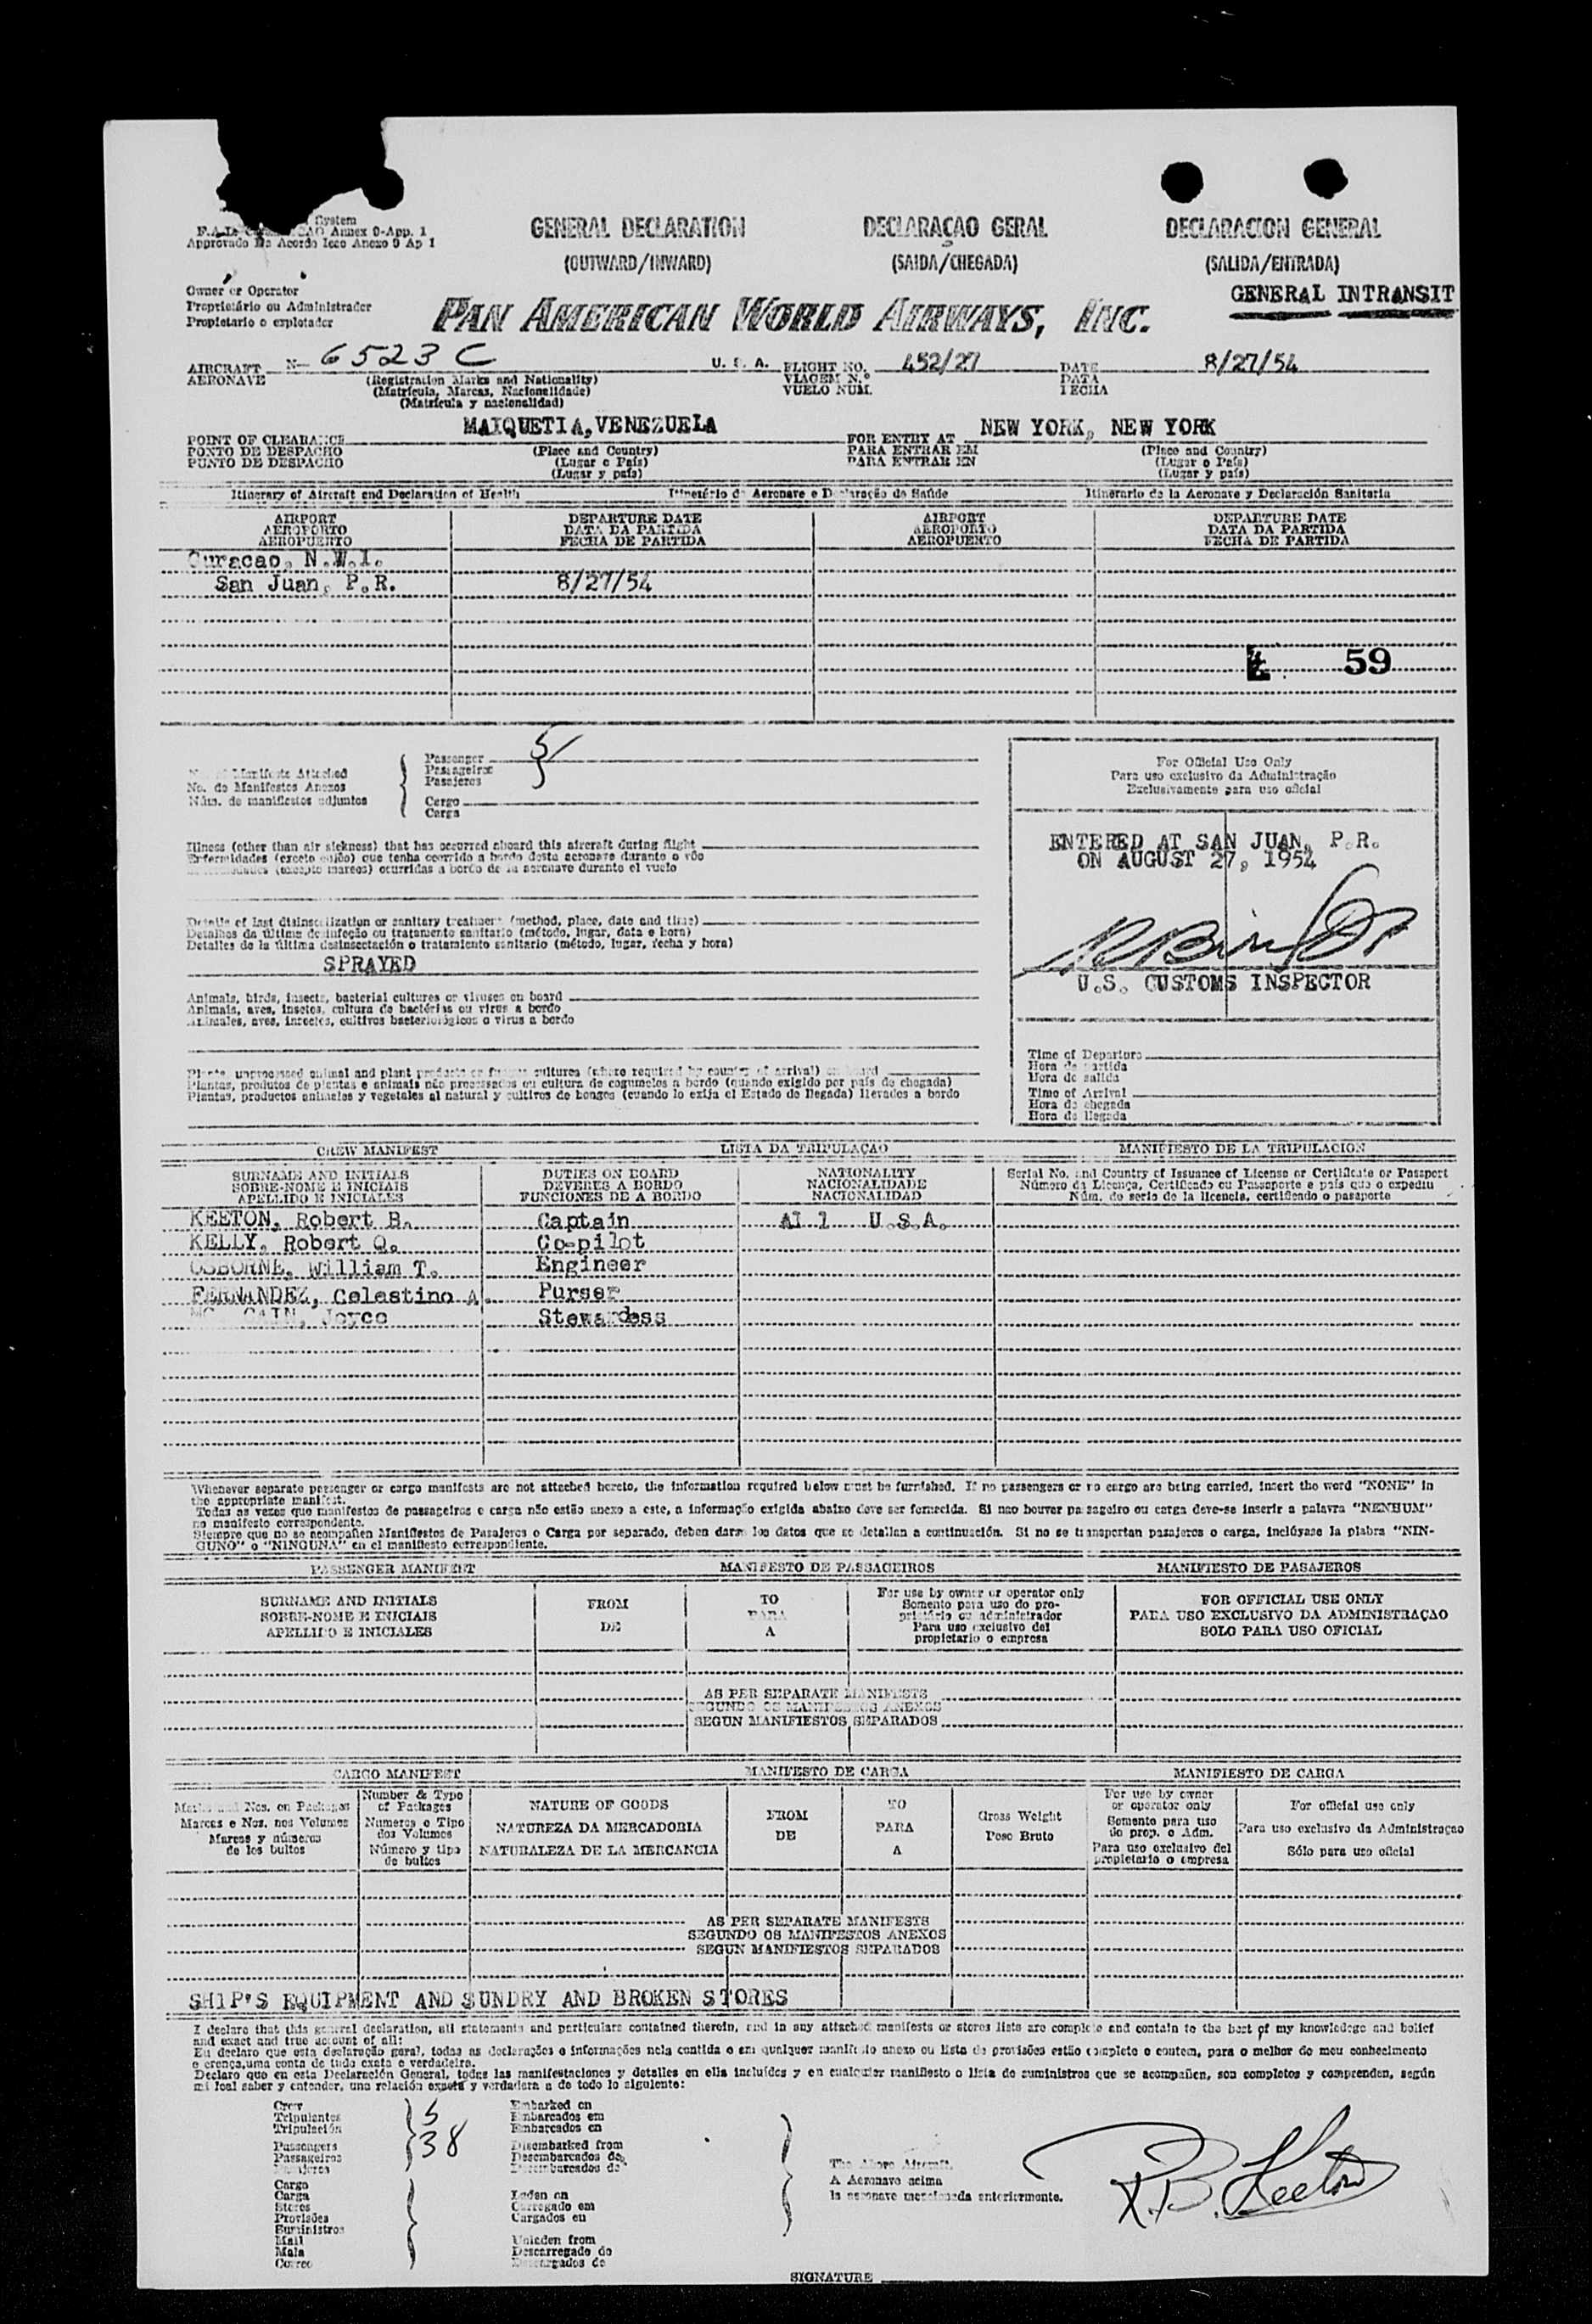 System
Annex 9-App. 1
Aprovado De Acordo Icao Anexo 9 Ap 1
GENERAL DECLARATION
(OUTWARD/INWARD)
DECLARAÇAO GERAL
(SAIDA/CHEGADA)
DECLARACION GENERAL
(SALIDA/ENTRADA)
GENERAL INTRANSIT
Owner or Operator
Proprietário ou Administrador
Propietario o explotador
PAN AMERICAN WORLD AIRWAYS, INC.
AIRCRAFT N— 6523C U. S. A. FLIGHT NO. 452/27 DATE 8/27/54
AERONAVE (Registration Marks and Nationality) VIAGEM N.º DATA
(Matrícula, Marcas, Nacionalidade) VUELO NUM. FECHA
(Matrícula y nacionalidad)
MAIQUETIA, VENEZUELA NEW YORK, NEW YORK
POINT OF CLEARANCE (Place and Country) FOR ENTRY AT (Place and Country)
PONTO DE DESPACHO (Lugar e País) PARA ENTRAR EM (Lugar o País)
PUNTO DE DESPACHO (Lugar y país) PARA ENTRAR EN (Lugar y país)
Itinerary of Aircraft and Declaration of Health Itinerário da Aeronave e Declaração da Saúde Itinerario de la Aeronave y Declaración Sanitaria
AIRPORT DEPARTURE DATE AIRPORT DEPARTURE DATE
AEROPORTO DATA DA PARTIDA AEROPORTO DATA DA PARTIDA
AEROPUERTO FECHA DE PARTIDA AEROPUERTO FECHA DE PARTIDA
Curacao, N.W.I.
San Juan, P.R. 8/27/54
59
No. of Manifests Attached
No. de Manifestos Anexos
Núm. de manifiestos adjuntos
Passenger 5
Passageiros
Pasajeros
Cargo
Carga
For Official Use Only
Para uso exclusivo da Administração
Exclusivamente para uso oficial
ENTERED AT SAN JUAN, P.R.
ON AUGUST 27, 1954
U.S. CUSTOMS INSPECTOR
Time of Departure
Hora de partida
Hora de salida
Time of Arrival
Hora de chegada
Hora de llegada
Illness (other than air sickness) that has occurred aboard this aircraft during flight
Enfermidades (exceto enjôo) que tenha ocorrido a bordo desta aeronave durante o vôo
Enfermedades (excepto mareos) ocurridas a bordo de la aeronave durante el vuelo
Details of last disinsectization or sanitary treatment (method, place, date and time)
Detalhes da última desinfeção ou tratamento sanitario (método, lugar, data e hora)
Detalles de la última desinsectación o tratamiento sanitario (método, lugar, fecha y hora)
SPRAYED
Animals, birds, insects, bacterial cultures or viruses on board
Animais, aves, insetos, cultura de bactérias ou virus a bordo
Animales, aves, insectos, cultivos bacteriológicos o virus a bordo
Plants, unprocessed animal and plant products or fungus cultures (where required by country of arrival) on board
Plantas, produtos de plantas e animais não processados ou cultura de cogumelos a bordo (quando exigido por país de chegada)
Plantas, productos animales y vegetales al natural y cultivos de hongos (cuando lo exija el Estado de llegada) llevados a bordo
CREW MANIFEST LISTA DA TRIPULAÇAO MANIFIESTO DE LA TRIPULACION
SURNAME AND INITIALS DUTIES ON BOARD NATIONALITY Serial No. and Country of Issuance of License or Certificate or Passport
SOBRE-NOME E INICIAIS DEVERES A BORDO NACIONALIDADE Número da Licença, Certificado ou Passaporte e país que o expediu
APELLIDO E INICIALES FUNCIONES DE A BORDO NACIONALIDAD Núm. de serie de la licencia, certificado o pasaporte
KEETON, Robert B. Captain All U.S.A.
KELLY, Robert Q. Co-pilot
OSBORNE, William T. Engineer
FERNANDEZ, Celestino A. Purser
MC CAIN, Joyce Stewardess
Whenever separate passenger or cargo manifests are not attached hereto, the information required below must be furnished. If no passengers or no cargo are being carried, insert the word "NONE" in
the appropriate manifest.
Todas as vezes que manifestos de passageiros e carga não estão anexo a este, a informação exigida abaixo deve ser fornecida. Si nao houver passageiro ou carga deve-se inserir a palavra "NENHUM"
no manifesto correspondente.
Siempre que no se acompañen Manifiestos de Pasajeros o Carga por separado, deben darse los datos que se detallan a continuación. Si no se transportan pasajeros o carga, inclúyase la plabra "NIN-
GUNO" o "NINGUNA" en el manifiesto correspondiente.
PASSENGER MANIFEST MANIFESTO DE PASSAGEIROS MANIFIESTO DE PASAJEROS
SURNAME AND INITIALS
SOBRE-NOME E INICIAIS
APELLIDO E INICIALES
FROM
DE
TO
PARA
A
For use by owner or operator only
Somento para uso do pro-
prietário ou administrador
Para uso exclusivo del
propietario o empresa
FOR OFFICIAL USE ONLY
PARA USO EXCLUSIVO DA ADMINISTRAÇAO
SOLO PARA USO OFICIAL
AS PER SEPARATE MANIFESTS
SEGUNDO OS MANIFESTOS ANEXOS
SEGUN MANIFIESTOS SEPARADOS
CARGO MANIFEST MANIFESTO DE CARGA MANIFIESTO DE CARGA
Marks and Nos. on Packages
Marcas e Nos. nos Volumes
Marcas y números
de los bultos
Number & Type
of Packages
Numeros e Tipo
dos Volumes
Número y tipo
de bultos
NATURE OF GOODS
NATUREZA DA MERCADORIA
NATURALEZA DE LA MERCANCIA
FROM
DE
TO
PARA
A
Gross Weight
Peso Bruto
For use by owner
or operator only
Somento para uso
do prop. o Adm.
Para uso exclusivo del
propietario o empresa
For official use only
Para uso exclusivo da Administraçao
Sólo para uso oficial
AS PER SEPARATE MANIFESTS
SEGUNDO OS MANIFESTOS ANEXOS
SEGUN MANIFIESTOS SEPARADOS
SHIP'S EQUIPMENT AND SUNDRY AND BROKEN STORES
I declare that this general declaration, all statements and particulars contained therein, and in any attached manifests or stores lists are complete and contain to the best of my knowledege and belief
and exact and true account of all:
Eu declaro que esta declaração geral, todas as declarações e informações nela contida e em qualquer manifesto anexo ou lista de provisões estão completo e contem, para o melhor do meu conhecimento
e crença,uma conta de tudo exata e verdadeira.
Declaro que en esta Declaración General, todas las manifestaciones y detalles en ella incluídos y en cualquier manifiesto o lista de suministros que se acompañen, son completos y comprenden, según
mi leal saber y entender, una relación exacta y verdadera a de todo lo siguiente:
Crew 5
Tripulantes
Tripulación
Passengers 38
Passageiros
Pasajeros
Cargo
Carga
Stores
Provisões
Suministros
Mail
Mala
Correo
Embarked on
Embarcados em
Embarcados en
Disembarked from
Desembarcados de
Desembarcados de
Laden on
Carregado em
Cargados en
Unladen from
Descarregado do
Descargados de
The Above Aircraft.
A Aeronave acima
la aeronave mencionada anteriormente.
R.B. Keeton
SIGNATURE